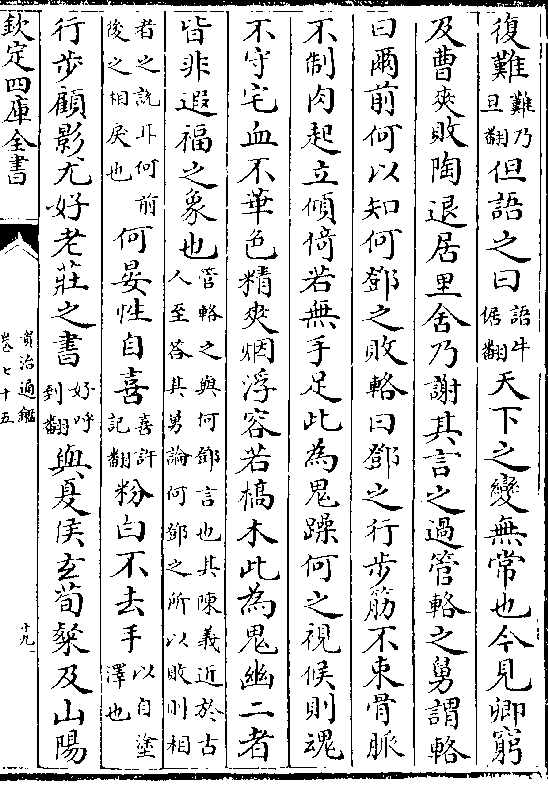 復難難乃旦翻但語之曰語牛倨翻天下之變無常也今見卿窮
及曹爽敗陶退居里舍乃謝其言之過管輅之舅謂輅
曰爾前何以知何鄧之敗輅曰鄧之行步筋不束骨脈
不制肉起立傾倚若無手足此為鬼躁何之視候則魂
不守宅血不華色精爽烟浮容若槁木此為鬼幽二者
皆非遐福之象也管輅之與何鄧言也其陳義近於古人至答其舅論何鄧之所以敗則相
者之說耳何前後之相戾也何晏性自喜喜許記翻粉白不去手以自塗澤也
行步顧影尤好老莊之書好呼到翻與夏侯玄荀粲及山陽
欽定四庫全書
資治通鑑
卷七十五
十九